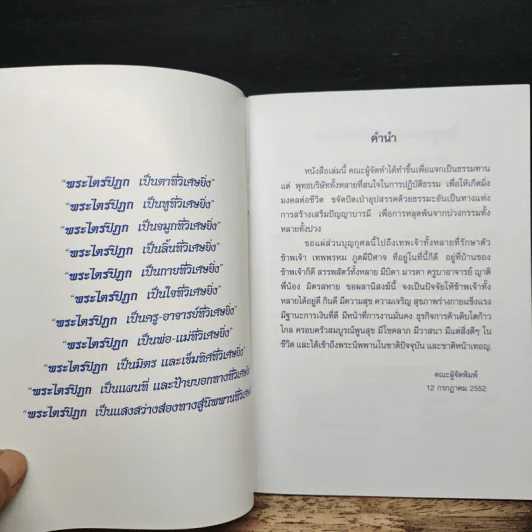 "พระไตรปิฎก เป็นตาที่วิเศษยิ่ง"
"พระไตรปิฎก เป็นหูที่วิเศษยิ่ง"
"พระไตรปิฎก เป็นจมูกที่วิเศษยิ่ง"
"พระไตรปิฎก เป็นลิ้นที่วิเศษยิ่ง"
"พระไตรปิฎก เป็นกายที่วิเศษยิ่ง"
"พระไตรปิฎก เป็นใจที่วิเศษยิ่ง"
"พระไตรปิฎก เป็นครู-อาจารย์ที่วิเศษยิ่ง"
"พระไตรปิฎก เป็นพ่อ-แม่ที่วิเศษยิ่ง"
"พระไตรปิฎก เป็นมิตร และเข็มทิศที่วิเศษยิ่ง"
"พระไตรปิฎก เป็นแผนที่ และป้ายบอกทางที่วิเศษยิ่ง
"พระไตรปิฎก เป็นแสงสว่างส่องทางสู่นิพพานที่วิเศษ
คำนำ
หนังสือเล่มนี้ คณะผู้จัดทำได้ทำขึ้นเพื่อแจกเป็นธรรมทาน
แด่ พุทธบริษัททั้งหลายที่สนใจในการปฏิบัติธรรม เพื่อให้เกิดมิ่ง
มงคลต่อชีวิต ขจัดปัดเป่าอุปสรรคด้วยธรรมะอันเป็นทางแห่ง
การสร้างเสริมปัญญาบารมี เพื่อการหลุดพ้นจากบ่วงกรรมทั้ง
หลายทั้งปวง
ขอแผ่ส่วนบุญกุศลนี้ไปถึงเทพเจ้าทั้งหลายที่รักษาตัว
ข้าพเจ้า เทพพรหม ภูตผีปีศาจ ที่อยู่ในที่นี้ก็ดี อยู่ที่บ้านของ
ข้าพเจ้าก็ดี สรรพสัตว์ทั้งหลาย มีบิดา มารดา ครูบาอาจารย์ ญาติ
พี่น้อง มิตรสหาย ขอผลานิสงฆ์นี้ จงเป็นปัจจัยให้ข้าพเจ้าทั้ง
หลายได้อยู่ดี กินดี มีความสุข ความเจริญ สุขภาพร่างกายแข็งแรง
มีฐานะการเงินที่ดี มีหน้าที่การงานมั่นคง ธุรกิจการค้าเติบโตก้าว
ไกล ครอบครัวสมบูรณ์พูนสุข มีโชคลาภ มีวาสนา มีแต่สิ่งดีๆ ใน
ชีวิต และได้เข้าถึงพระนิพพานในชาติปัจจุบัน และชาติหน้าเทอญ.
คณะผู้จัดพิมพ์
12 กรกฎาคม 2552